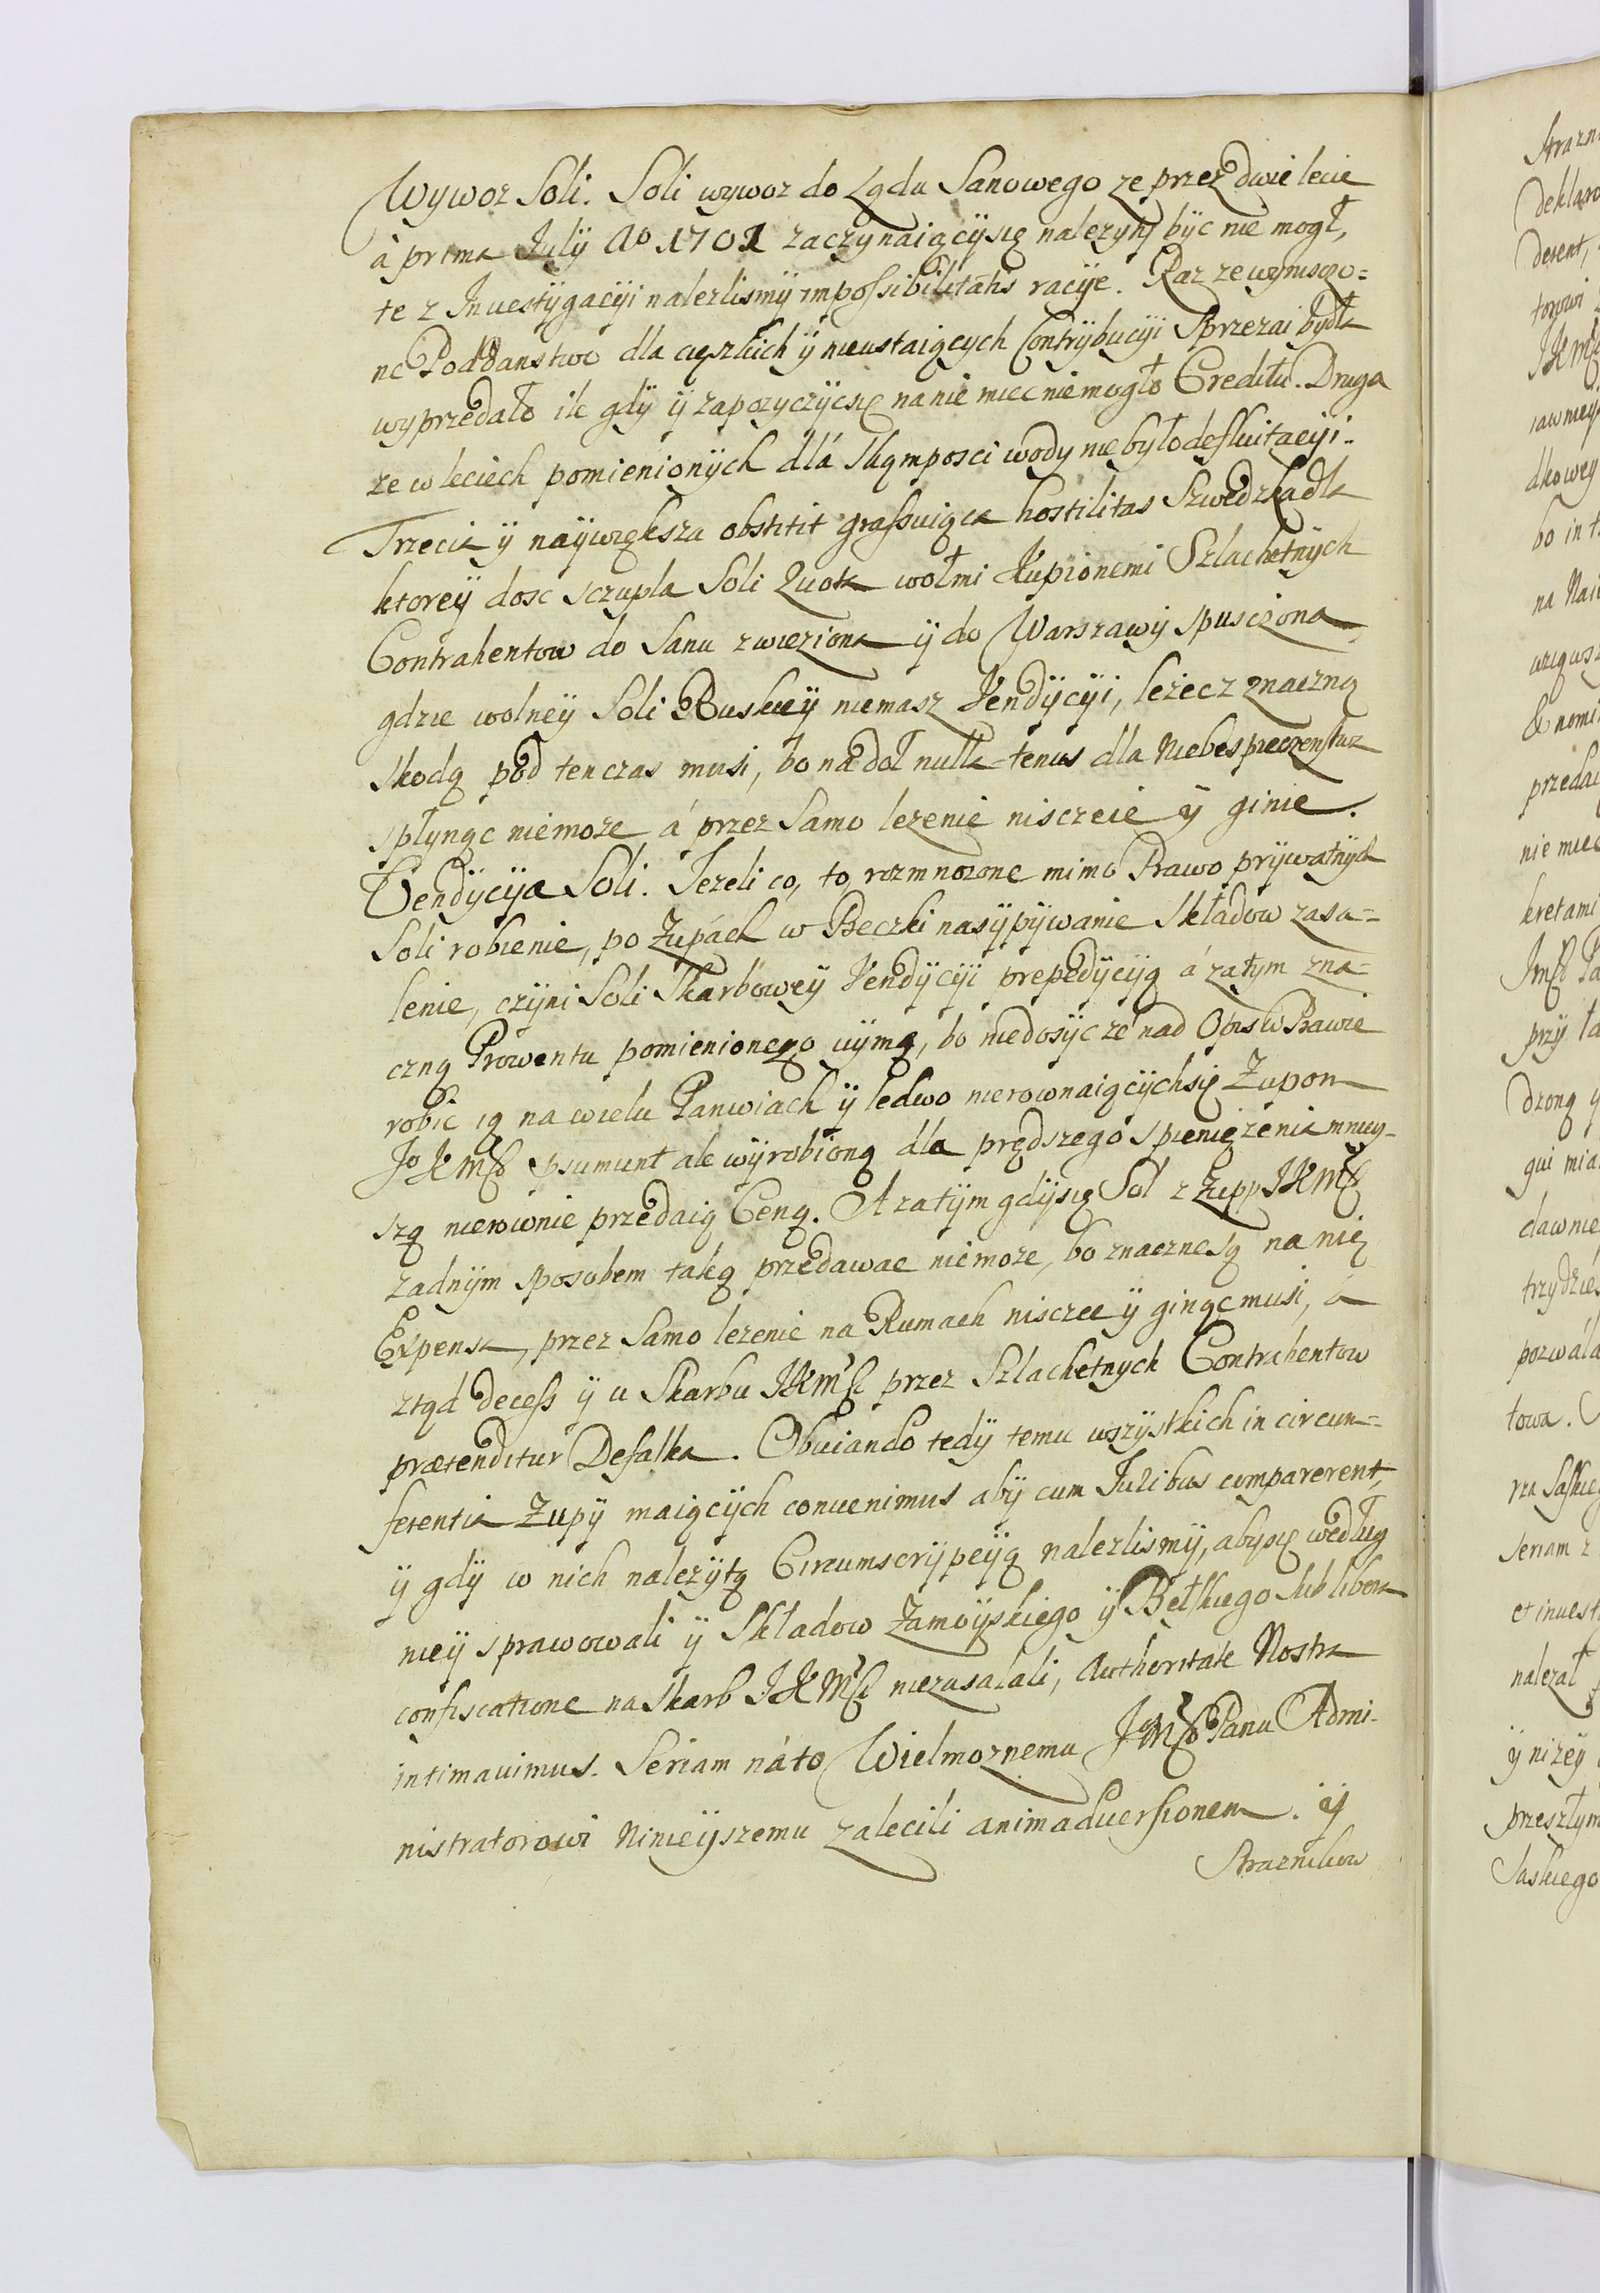 Wywoz Soli. Soli wywoz do Lądu Sanowego ze przez dwie lecie
à prima Julij Ao 1701 zaczynaiącÿ się nalezyty bÿc nie mogł,
te z Inuestÿgacÿi nalezlismÿ impossibilitatis racÿe. Raz ze wyniszczo=
ne Poddanstwo dla cięzkich ÿ nieustaiących Contrÿbucÿi Sprzezai bÿdła
wyprzedało ile gdÿ ÿ zapozyczÿc się na nie miec niemogło Creditu. Druga
ze w leciech pomienionÿch dlá skąmposci wody nie było defluitacÿi.
Trzecia ÿ naÿwiększa obstitit grassuiąca hostilitas Szwedzka dla
ktoreÿ dosc sczupla Soli Quota wołmi kupionemi Szlachetnÿch
Contrahentow do Sanu zwieziona ÿ do Warszawÿ spusczona,
gdzie wolneÿ Soli Ruskieÿ niemasz Vendÿcÿi, lezec z znaczną
skodą pod ten czas musi, bo na doł nulla tenus dla Niebespieczenstwa
spłynąc niemoze á przez samo lezenie nisczeie ÿ ginie.
Vendÿcÿa Soli. Jezeli co, to rozmnozone mimo Prawo prÿwatnÿch
Soli robienie, po Zupách w Beczki nasÿpÿwanie Składow zasa=
lenie, czÿni Soli Skarboweÿ Vendÿcÿi prepedÿcÿą á zatym zna=
czną Prowentu pomienionego uÿmę, bo niedosÿc ze nad Opis w Prawie
robic ią na wielu Panwiach ÿ ledwo nierownaiącÿch się Zupom
Jo K Mſci psumunt ale wÿrobioną dla prędszego spienięzenia mniey-
szą nierownie przedaią Ceną. A zatÿm gdÿ się Sol z Zupp JKMſci
zadnÿm sposobem taką przedawac niemoze, bo znaczne są na nię
Expensa, przez samo lezenie na Rumach nisczec ÿ ginąc musi, á
ztąd decess ÿ u Skarbu JKMſci przez Szlachetnych Contrahentow
prætenditur Defalka. Obuiando tedÿ temu wszÿstkich in circum=
ferentia Zupÿ maiącÿch conuenimus abÿ cum Juribus comparerent,
ÿ gdÿ w nich nalezÿtą Circumscrÿpcÿą nalezlismÿ, aby się według
nieÿ sprawowali ÿ Składow Zamoÿskiego ÿ Bełskiego sub libera
confiscatione na Skarb JKMſci niezasalali, Authoritate Nostra
intimauimus. Seriam náto Wielmoznemu JeMſci Panu Admi-
nistratorowi Ninieÿszemu zalecili animaduersionem. ÿ
Straznikow